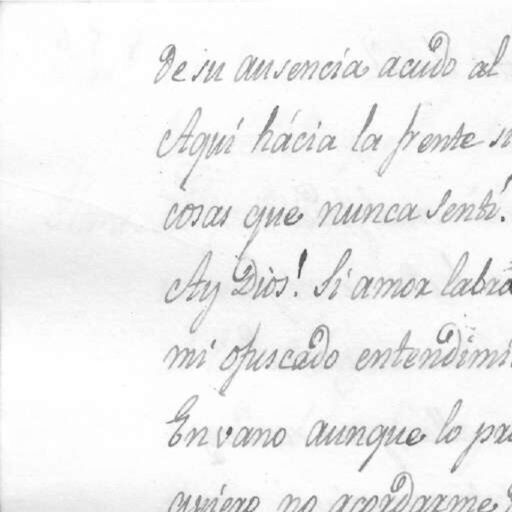 De su ausencia acudo al
Aquí hácia la frente si
cosas que nunca sentí.
Ay Dios! Si amor labra
mi ofuscado entendimi
En vano aunque lo pro
quiero no acordarme